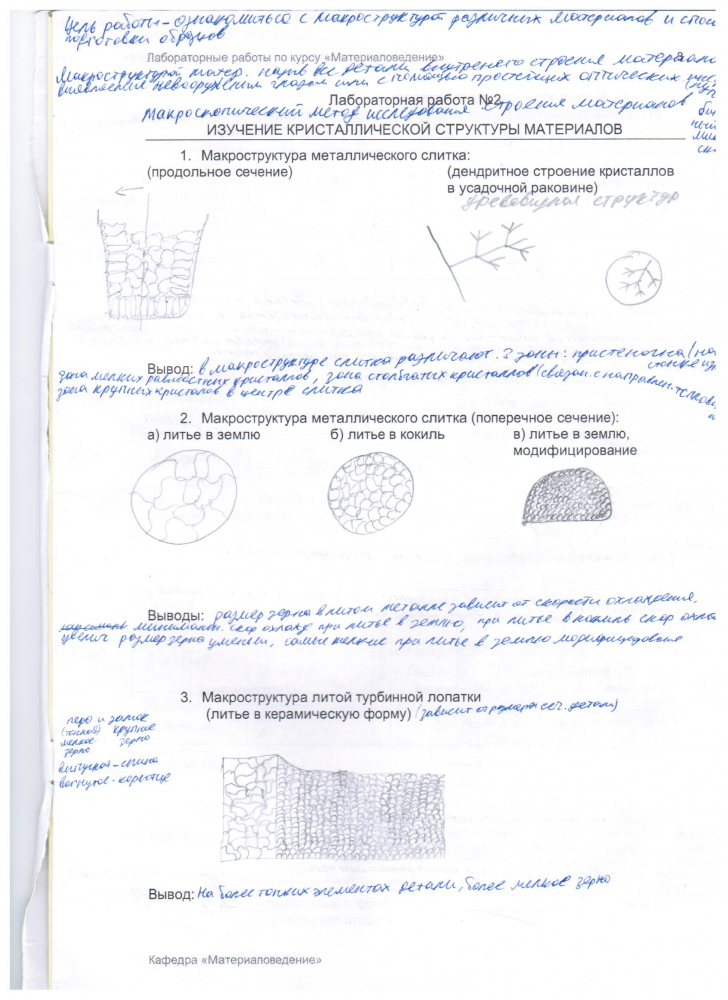 Цель работы - ознакомиться с макроструктурой различных материалов и спосо
подготовки образцов
Лабораторные работы по курсу «Материаловедение»
Макроструктурой матер. назыв все детали внутренего строения материало
выявляемые невооружённым глазом или с помощью простейших оптических
Лабораторная работа №2
Макроскопический метод исследования строения материалов
ИЗУЧЕНИЕ КРИСТАЛЛИЧЕСКОЙ СТРУКТУРЫ МАТЕРИАЛОВ
1. Макроструктура металлического слитка:
(продольное сечение)
(дендритное строение кристаллов
в усадочной раковине)
древовидная структур
Вывод: в макроструктуре слитка различают. 3 зоны: пристеночна (на
зона мелких равноостных кристаллов, зона столбчатых кристаллов (связан. с направлен. теплоо
зона крупных кристалов в центре слитка
2. Макроструктура металлического слитка (поперечное сечение):
а) литье в землю
б) литье в кокиль
в) литье в землю,
модифицирование
Выводы: размер зерна в литом металле зависит от скорости охлаждения.
минимальн. скор охлажд при литье в землю, при литье в кокиль скор охла
увелич размер зерна уменьш, самые мелкие при литье в землю модифицирования
3. Макроструктура литой турбинной лопатки
(литье в керамическую форму) (зависит от размера сеч. детали)
перо и замок
(тонкая) крупное
мелкое зерно
зерно
выпуклая - спина
вогнутое - корытце
Вывод: На более тонких элементах детали, более мелкое зерно
Кафедра «Материаловедение»